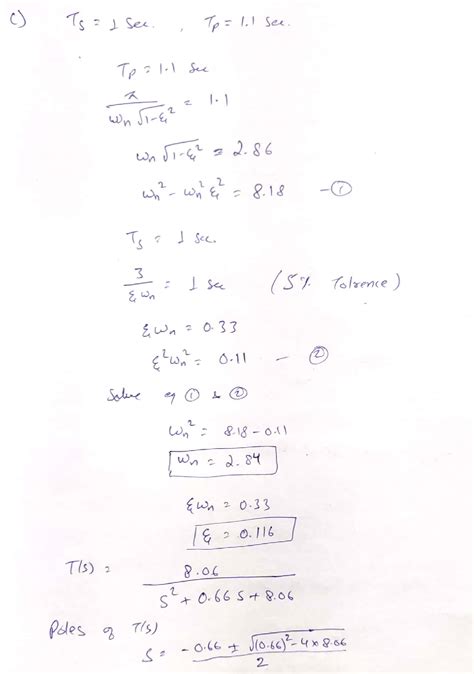 c) Ts = 1 Sec. , Tp = 1.1 Sec.
Tp = 1.1 Sec
π / (ωn √1-ξ²) = 1.1
ωn √1-ξ² = 2.86
ωn² - ωn² ξ² = 8.18 - ①
Ts = 1 Sec.
3 / (ξ ωn) = 1 Sec (5% Tolrence)
ξ ωn = 0.33
ξ² ωn² = 0.11 - ②
Solve eq ① & ②
ωn² = 8.18 - 0.11
ωn = 2.84
ξ ωn = 0.33
ξ = 0.116
T(s) = 8.06 / (S² + 0.66 S + 8.06)
Poles of T(s)
S = (-0.66 ± √(0.66)² - 4 x 8.06) / 2